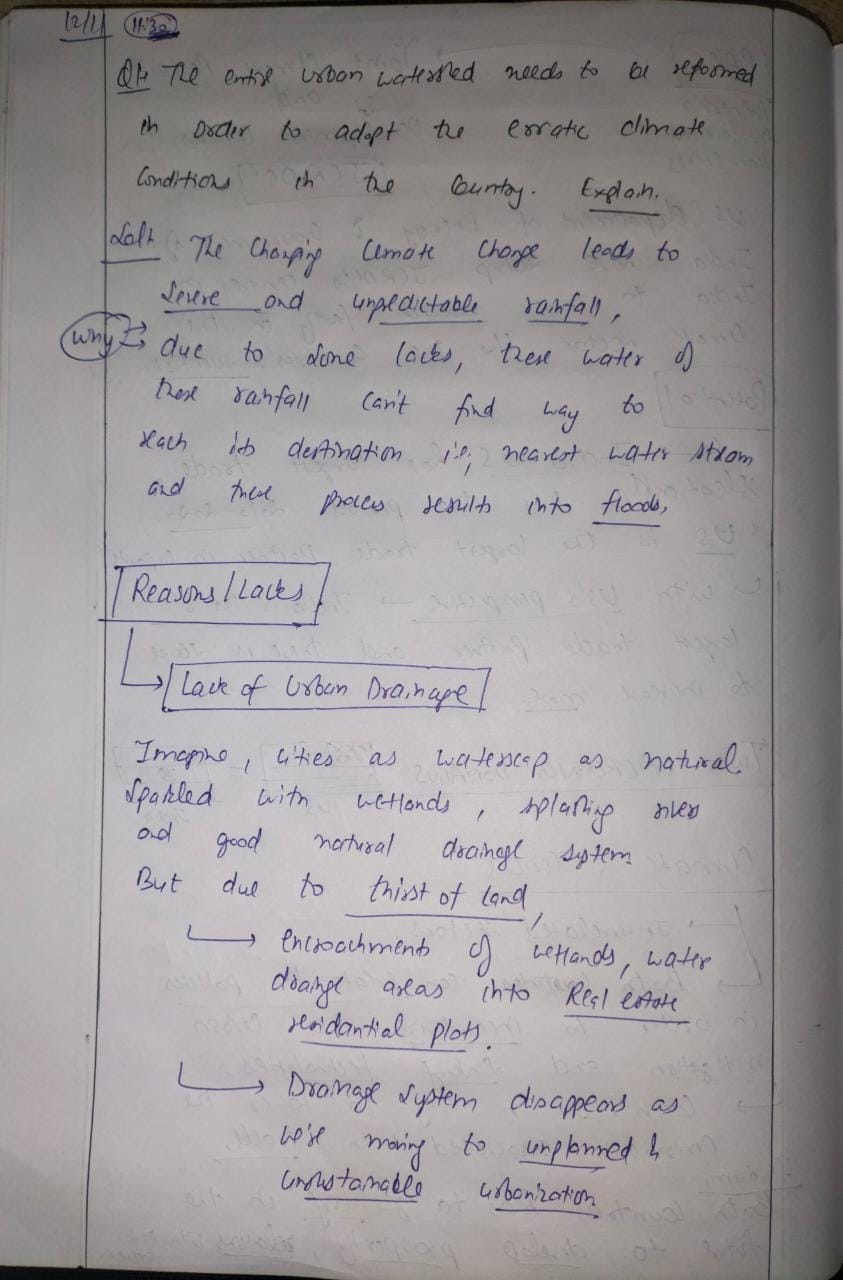 12/11 11:30
Q1: The entire urban watershed needs to be reformed
in order to adapt the erratic climate
conditions in the Country. Explain.
Sol: The Changing Climate Change leads to
Severe and unpredictable rainfall,
Why due to some lacks, these water of
these rainfall can't find way to
reach its destination i.e; nearest water stream
and these process results into floods,
Reasons / Lacks
Lack of Urban Drainage
Imagine, cities as waterscap as natural
Sparkled with wetlands, splashing rivers
and good natural drainage system
But due to thirst of land,
encroachments of wetlands, water
drainge areas into Real estate
residantial plots.
Drainage System disappears as
we're moving to unplanned &
unsustainable urbanization